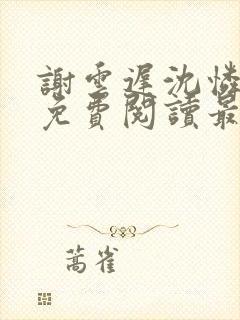 謝雲遲沈憐
免費閱讀最
蒿雀